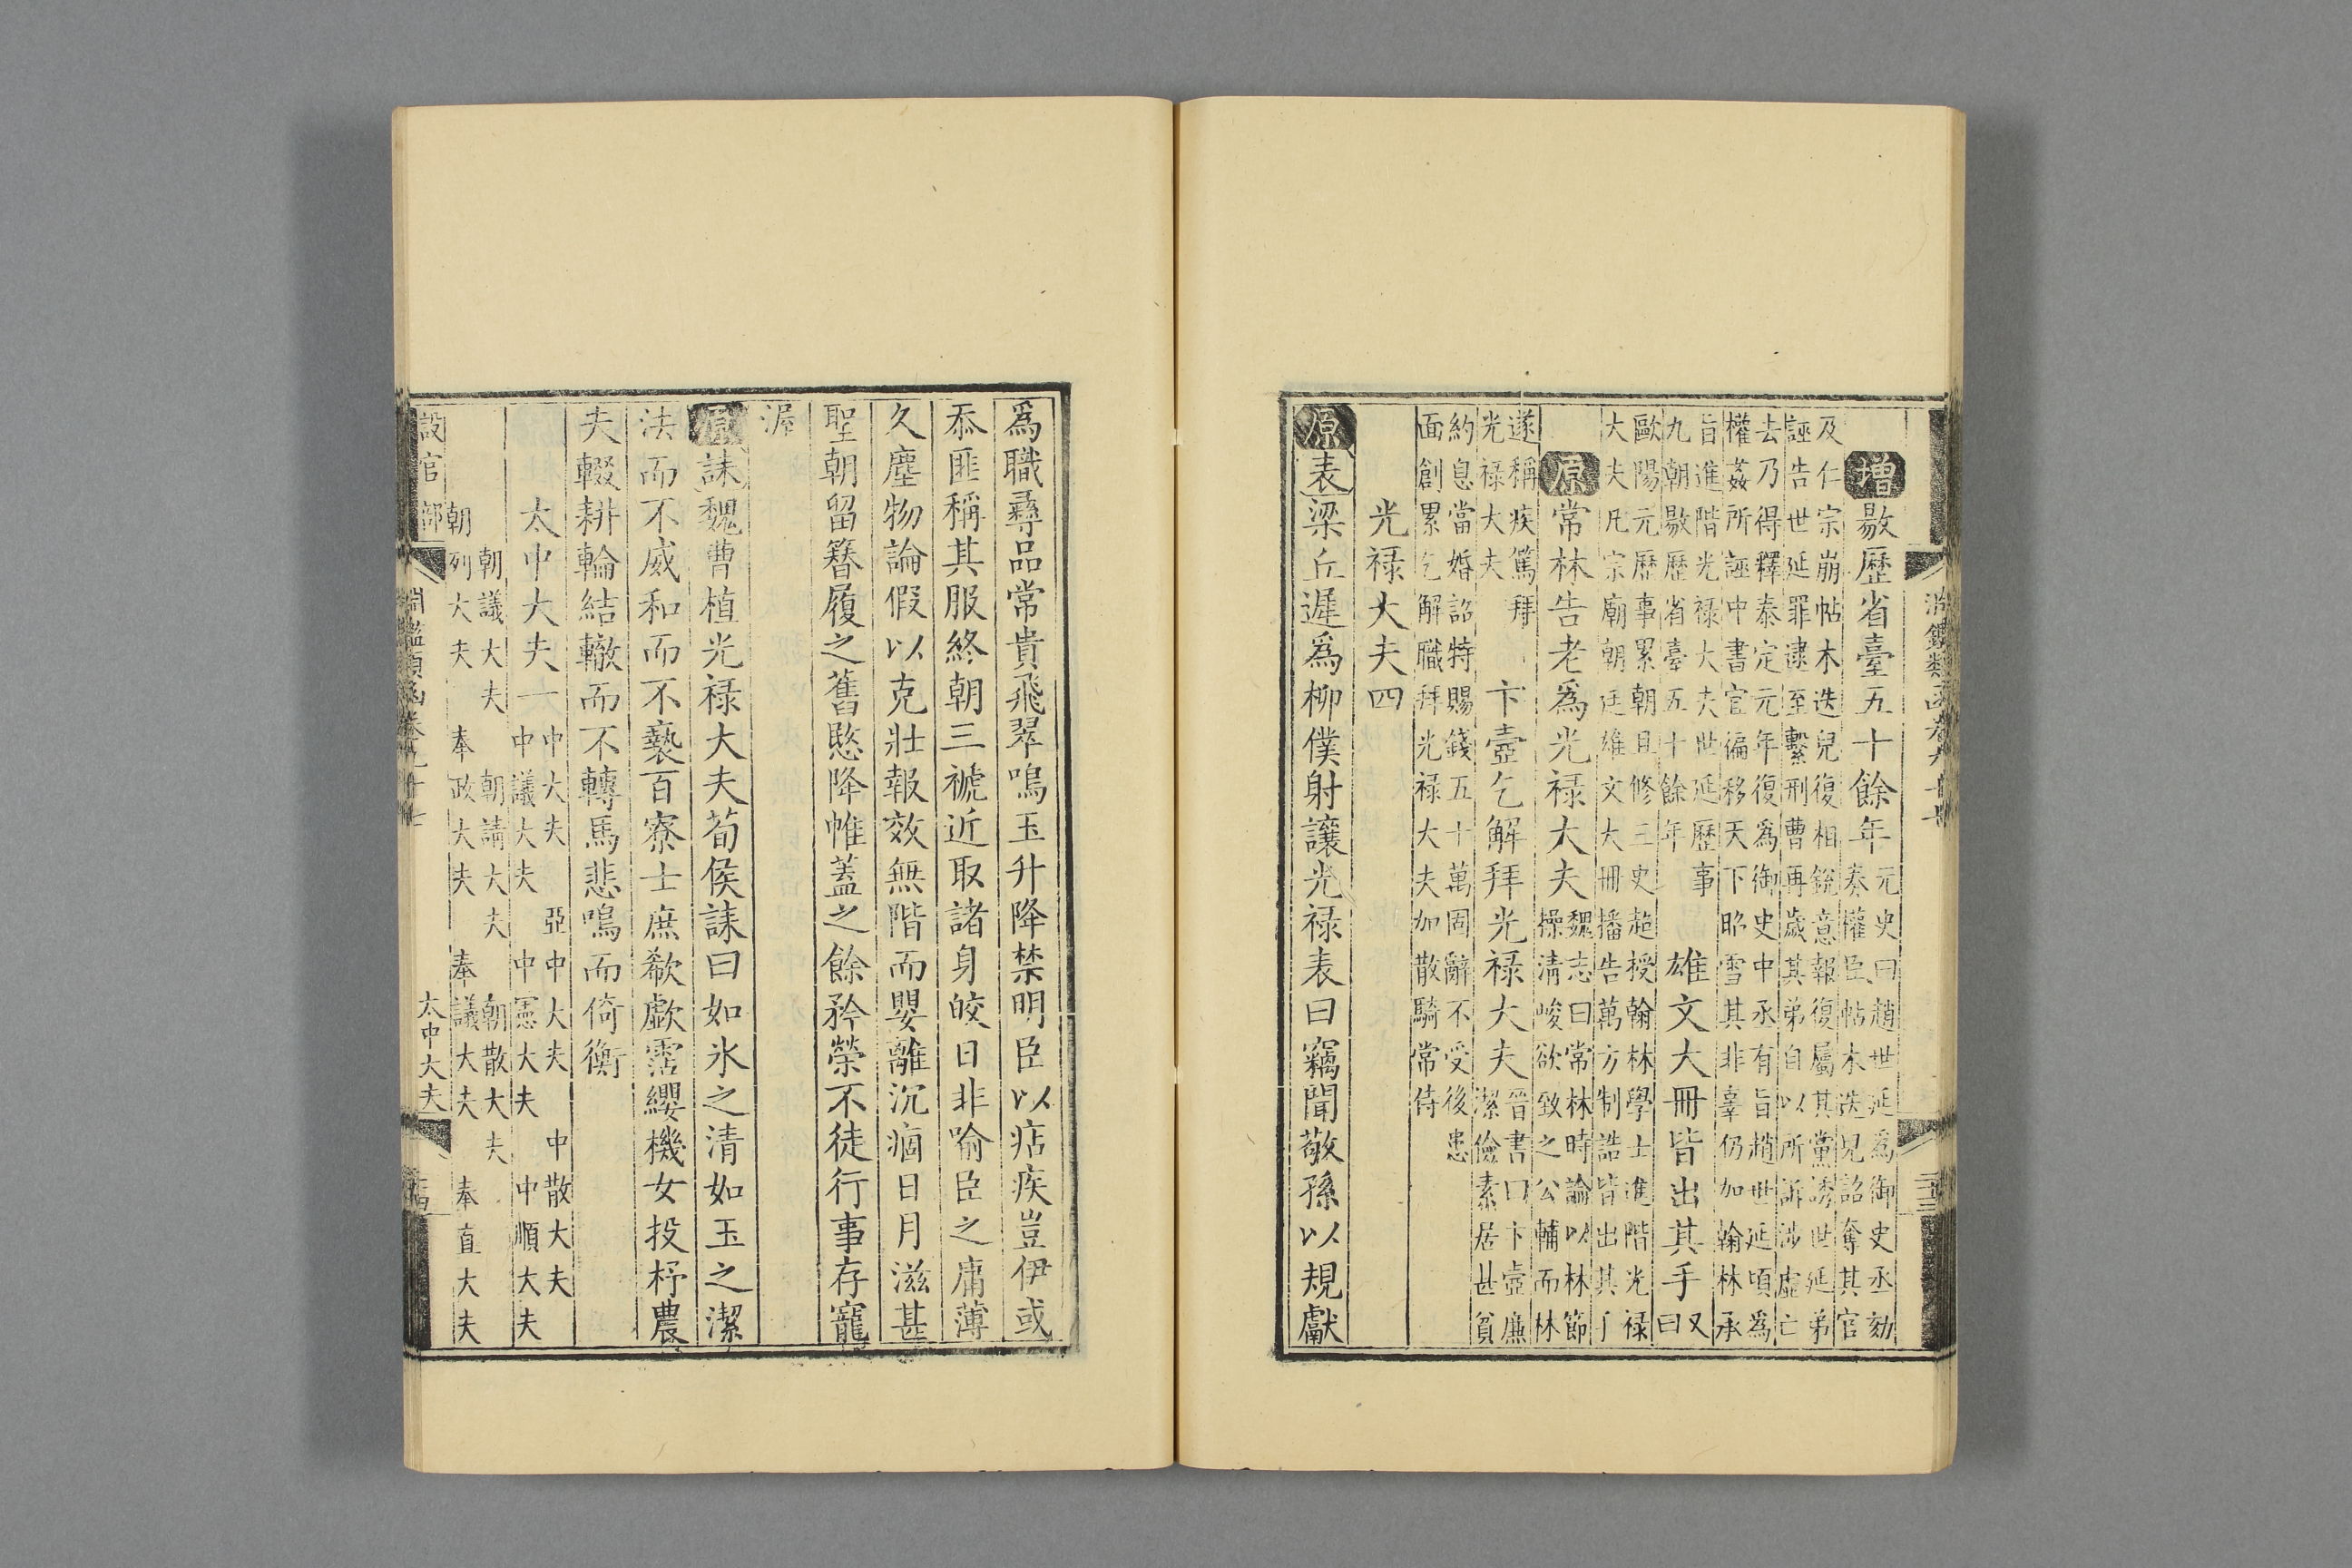 淵鑑類函卷九十七
二十三
增敭歷省臺五十餘年
元史曰趙世延爲御史丞劾
奏權臣帖木迭兒詔奪其官
及仁宗崩帖木迭兒復相銳意報復屬其黨誘世延弟
誣告世延罪逮至繫刑曹再歲其弟自以所訴涉虛亡
去乃得釋泰定元年復爲御史中丞有旨趙世延頃爲
權姦所誣中書宜徧移天下昭雪其非辜仍加翰林承
旨進階光禄大夫世延歷事
九朝敭歷省臺五十餘年
雄文大冊皆出其手
又
曰
歐陽元歷事累朝且修三史超授翰林學士進階光禄
大夫凡宗廟朝廷雄文大冊播告萬方制誥皆出其手
原常林告老爲光禄大夫
魏志曰常林時論以林節
操清峻欲致之公輔而林
遂稱疾篤拜
光禄大夫
卞壼乞解拜光禄大夫
晉書曰卞壼廉
潔儉素居甚貧
約息當婚詔特賜錢五十萬固辭不受後患
面創累乞解職拜光禄大夫加散騎常侍
光禄大夫四
原表梁丘遲爲柳僕射讓光禄表曰竊聞敬孫以規獻
爲職彝品常貴飛翠鳴玉升降禁明臣以痁疾豈伊或
忝匪稱其服終朝三褫近取諸身皎日非喻臣之庸薄
久塵物論假以克壯報效無階而嬰離沉痼日月滋甚
聖朝留簪履之舊愍降帷蓋之餘矜榮不徒行事存寵
渥
原誄魏曹植光禄大夫荀侯誄曰如氷之清如玉之潔
法而不威和而不褻百寮士庶欷歔霑纓機女投杼農
夫輟耕輪結轍而不轉馬悲鳴而倚衡
太中大夫一
中大夫 亞中大夫 中散大夫
中議大夫 中憲大夫 中順大夫
朝議大夫 朝請大夫 朝散大夫
朝列大夫 奉政大夫 奉議大夫 奉直大夫
設官部
淵鑑類函卷九十七
太中大夫